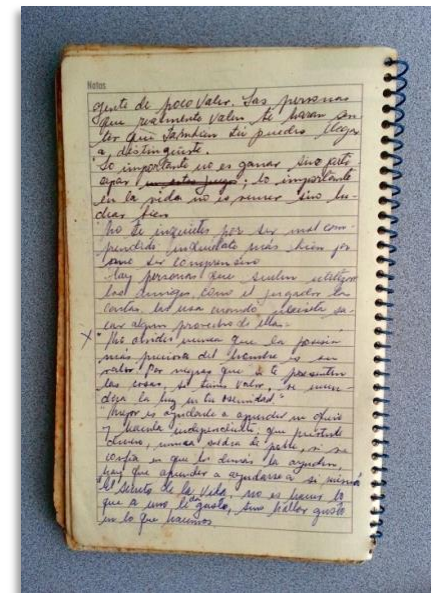 Notas
gente de poco valor. Las personas
que realmente valen te haran sen
ter que tambien tú puedes llegar
a distinguirte.
"Lo importante no es ganar sino parti
cipar en este juego; lo importante
en la vida no es vencer sino lu-
char bien
"No te inquietes por ser mal com-
prendido, inquietate más bien por
no ser comprensivo
"Hay personas que suelen utilizar
los amigos como el jugador las
cartas, las usa cuando necesita sa-
car algun provecho de ellas.
X "No olvides nunca que la posesión
más preciosa del hombre es su
valor. Por negras que se te presenten
las cosas, si tienes valor, se
la luz en tu oscuridad"
"Mejor es ayudarle a aprender un oficio
y hacerlo independiente; que prestarle
dinero, nunca saldra de pobre, si se
confia en que los demás le ayuden,
hay que aprender a ayudarse a si mismo
"El secreto de la vida, no es hacer lo
que a uno le gusta, sino hallar gusto
en lo que hacemos.